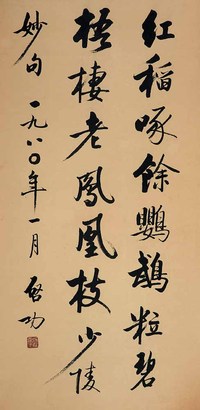 红稻啄馀鹦鹉粒碧
梧棲老鳳凰枝少陵
妙句 一九八〇年一月 啓功